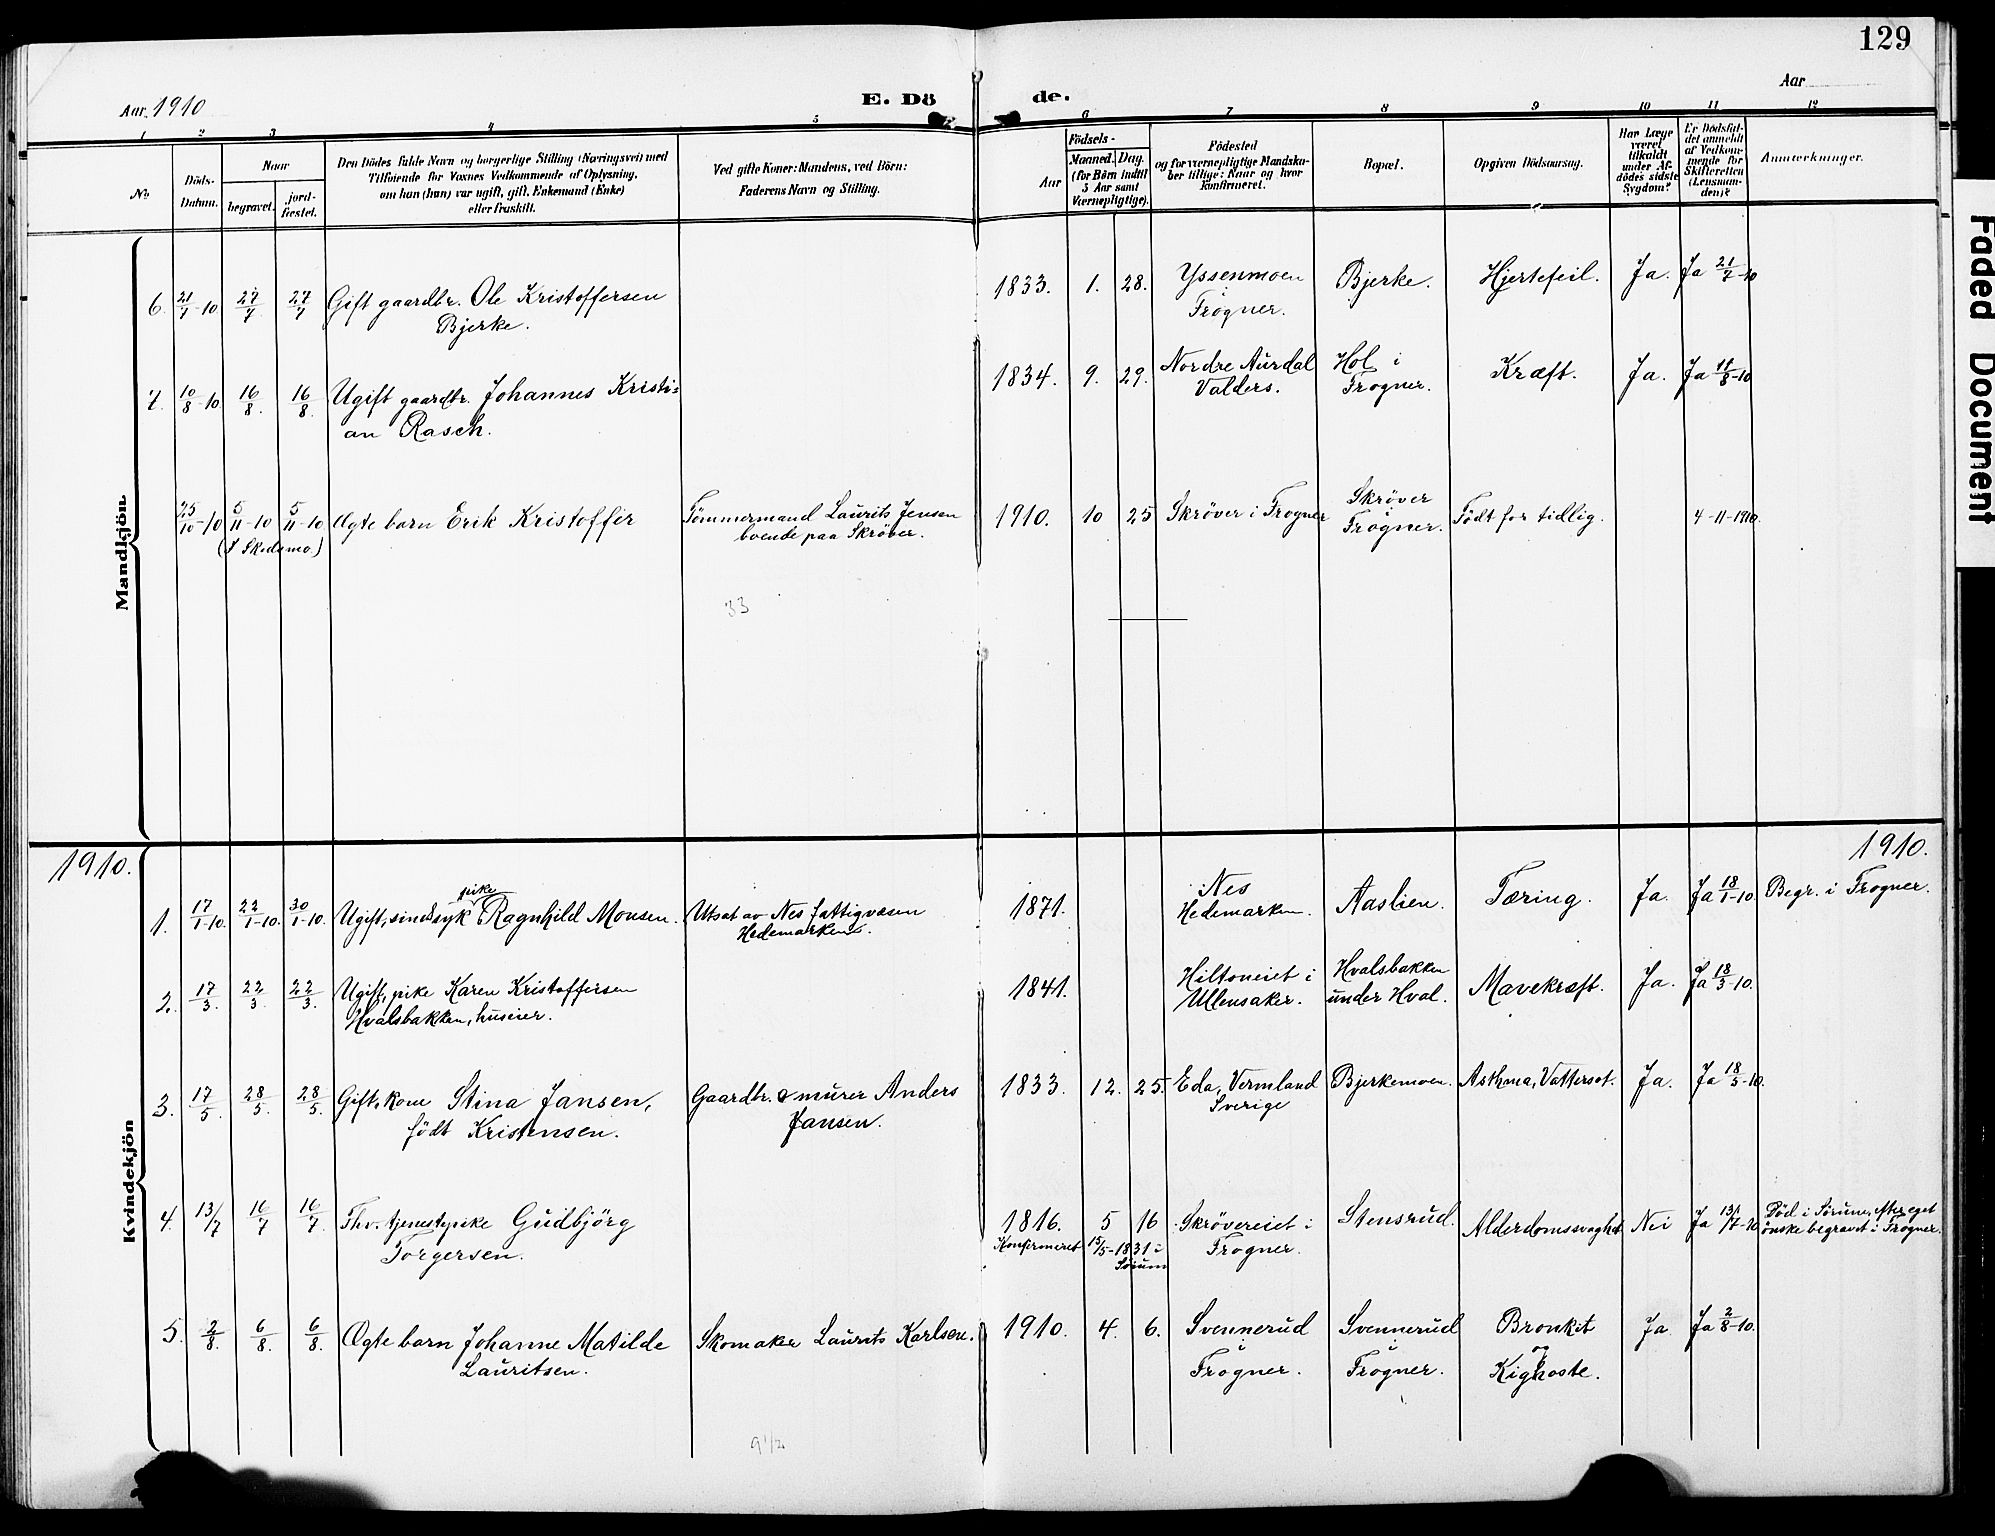 129
Aar 1910
E. Döde.
Aar
1 2 3 4 5 6 7 8 9 10 11 12
No
Döds-Datum.
Naar
begravet.
jord-fæstet.
Den Dödes fulde Navn og borgerlige Stilling (Næringsvei) med
Tilföiende for Voxnes Vedkommende af Oplysning,
om han (hun) var ugift, gift, Enkemand (Enke)
eller fraskilt.
Ved gifte Koner: Mandens, ved Börn:
Faderens Navn og Stilling.
Födsels-
Aar
Maaned. Dag.
(for Börn indtil
5 Aar samt
Værnepligtige).
Födested
og for værnepligtige Mandskaber tillige: Naar og hvor
konfirmeret.
Bopæl.
Opgiven Dödsaarsag.
Har Læge
været
tilkaldt
under Afdödes sidste
Sygdom?
Er Dödsfaldet anmeldt
af Vedkommende for
Skifteretten
(Lensmanden)?
Anmærkninger.
Mandkjön.
6. 21/7-10 27/7 27/7 Gift gaardbr. Ole Kristoffersen
Bjerke.
1833. 1. 28. Yssenmoen
Frogner.
Bjerke. Hjertefeil. Ja. Ja 21/7-10
7. 10/8-10 16/8. 16/8. Ugift gaardbr. Johannes Kristi=
an Rasch.
1834. 9. 29. Nordre Aurdal
Valders.
Hol i
Frogner.
Kræft. Ja. Ja 11/8-10
25/10-10 5/11-10 5/11-10 Ægte barn Erik Kristoffer
(I Skedsmo.)
Tömmermand Laurits Jensen
boende paa Skröver.
1910. 10 25 Skröver i Frogner
Skröver
i
Frogner.
Födt for tidlig. 4-11-1910.
33
Kvindekjön
1910.
1910.
1. 17/1-10. 22/1-10. 30/1-10. Ugift, sindssyk pike Ragnhild Monsen.
Utsat av Nes fattigvæsen
Hedemarken.
1871. Nes
Hedemarken.
Aaslien. Tæring. Ja. Ja 18/1-10. Begr. i Frogner.
2. 17/3. 22/3. 22/3. Ugift, pike Karen Kristoffersen
Hvalsbakken, huseier.
1841. Hiltoneiet i
Ullensaker.
Hvalsbakken
under Hval.
Mavekræft. Ja. Ja 18/3-10.
3. 17/5. 28/5. 28/5. Gift, kone Stina Jansen,
födt Kristensen.
Gaardbr. & murer Anders
Jansen.
1833. 12. 25. Eda, Vermland
Sverige
Bjerkemoen. Asthma, Vattersot. Ja. Ja 18/5-10.
4. 13/7 16/7 16/7. Fhv. tjenestepike Gudbjörg
Torgersen.
1816. 5 16
Konfirmeret 15/5-1831 i
Sörum
Skrövereiet i
Frogner.
Stensrud. Alderdomssvaghet Nei Ja 13/7-10
Död i Sörum, efter eget
önske begravet i Frogner.
5. 2/8. 6/8. 6/8. Ægte barn Johanne Matilde
Lauritsen.
Skomaker Laurits Karlsen.
1910. 4. 6. Svennerud
Frogner.
Svennerud
Frogner.
Bronkit
og
Kighoste.
Ja. Ja 2/8-10.
9 1/2
Faded Document